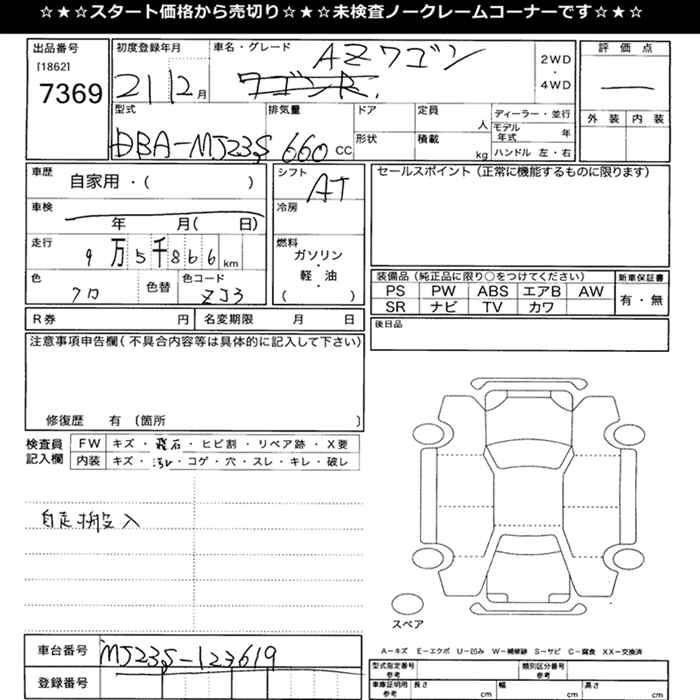 ☆★☆★スタート価格から売切り☆★☆★未検査ノークレームコーナーです☆★☆★
出品番号
[1862]
7369
初度登録年月
21 12 月
車名・グレード
AZワゴン
ワゴンR.
2WD
・
4WD
評価点
外装 内装
型式
DBA-MJ23S
排気量
660 cc
ドア
形状
定員
人
積載
kg
ディーラー・並行
モデル年式 年
ハンドル 左・右
車歴
自家用・( )
車検
年 月( 日)
走行
9万5千866 km
色
クロ
色替
色コード
ZJ3
シフト
AT
冷房
燃料
ガソリン
・
軽・油
( )
セールスポイント(正常に機能するものに限ります)
装備品(純正品に限り○をつけてください)
PS PW ABS エアB AW
SR ナビ TV カワ
新車保証書
有・無
後日品
R券 円
名変期限 月 日
注意事項申告欄(不具合内容等は具体的に記入して下さい)
修復歴 有 (箇所 )
検査員記入欄
FW キズ・飛石・ヒビ割・リペア跡・X要
内装 キズ・汚レ・コゲ・穴・スレ・キレ・破レ
自走搬入
スペア
A−キズ E−エクボ U−凹み W−補修跡 S−サビ C−腐食 XX−交換済
車台番号
MJ23S-123619
登録番号
型式指定番号
参考
類別区分番号
参考
車庫証明用
参考
長さ cm
幅 cm
高さ cm